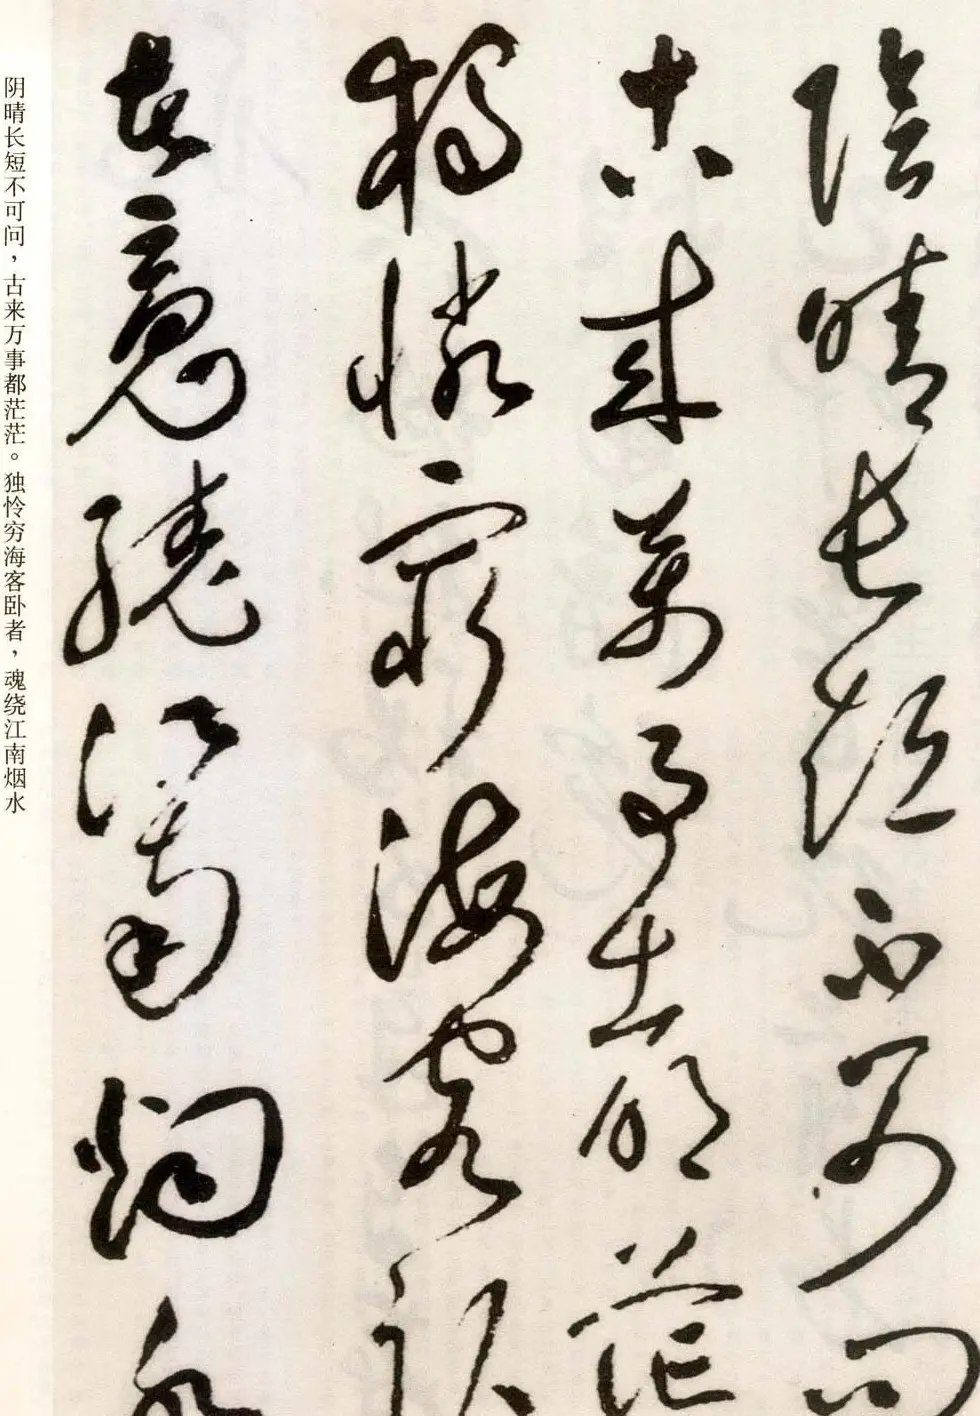 陰晴長短不可問
古来萬事都茫
獨憐窮海客臥
者魂繞江南烟水
阴晴长短不可问，古来万事都茫茫。独怜穷海客卧者，魂绕江南烟水